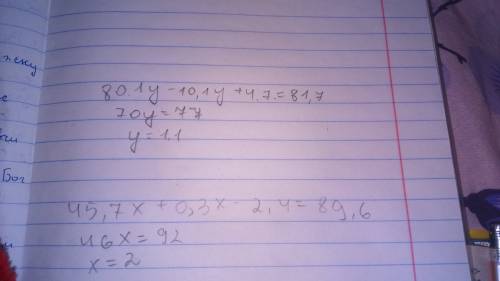 нску
80.1y - 10,1y + 4.7. = 81,7
70y = 77
y = 1.1
Бог
45,7x + 0,3x - 2,4 = 89,6
46x = 92
x = 2